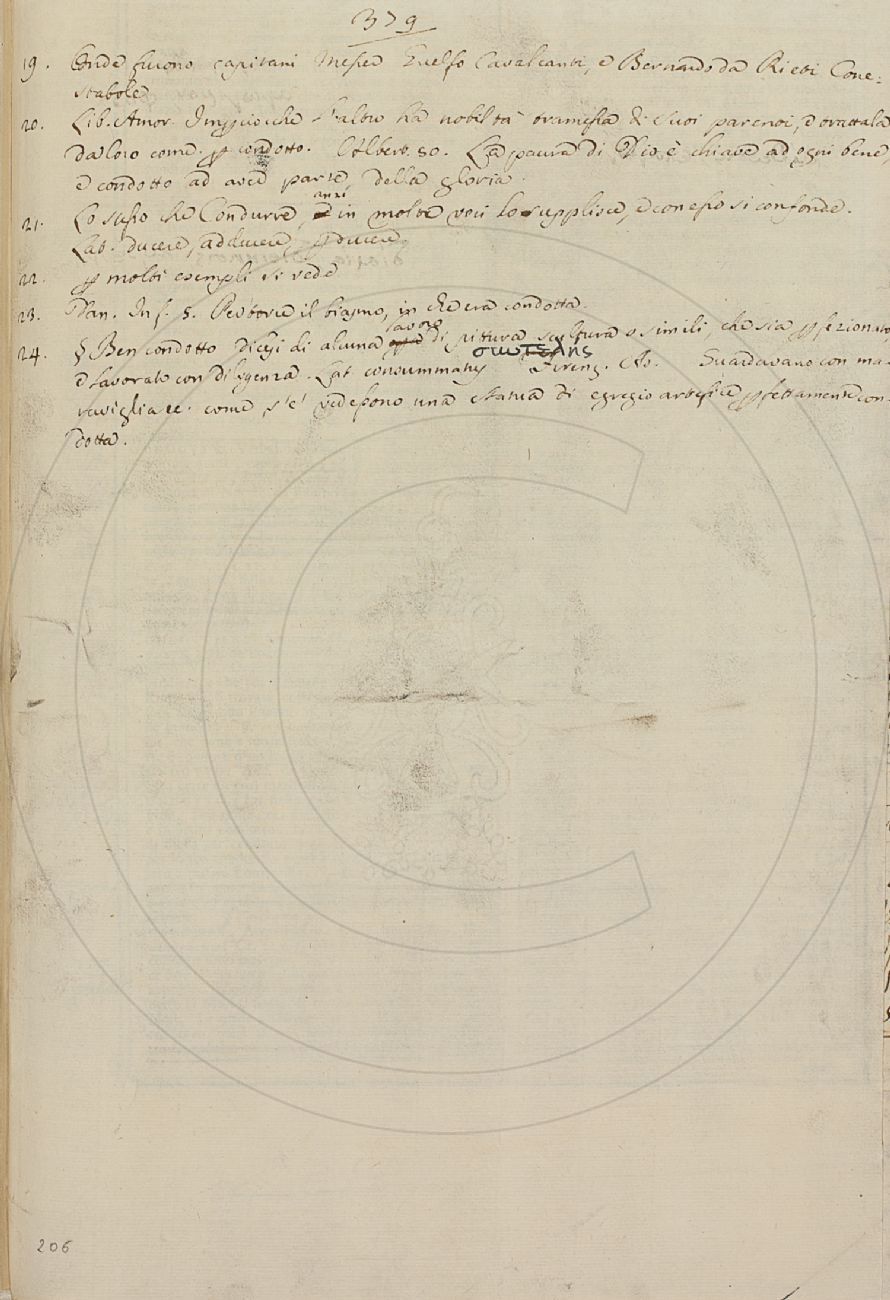 379
19. Onde furono capitani Messer Guelfo Cavalcanti, e Bernardo da Rieti Cone=
stabole
20. Lib. Amor. Impciocche l'altro ha nobiltà tramessa da suoi parenti, e trattala
da loro come. p condotto. Albert. 50. La paura di Dio è chiave ad ogni bene,
e condotto ad aver parte, della gloria.
21. Lo stesso che Condurre, anzi in molte voci lo supplisce, e con esso si confonde.
Lat. ducere, adducere, pducere.
22. p molti esempli si vede
23. Dan. Inf. 5. Per torre il biasmo, in che era condotta.
24. § Ben condotto dicesi di alcuna favore di pittura scultura o simili, che sia pfezionato,
e lavorato con diligenza. Lat. consummatus Firenz. As. Guardavano con ma-
raviglia ec. come s'e' vedessono una statua di egregio artefice pfettamente con-
dotta.
206